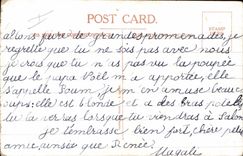 POST CARD.
allons faire de grandes promenades, je
regrette que tu ne sois pas avec nous
je crois que tu n'as pas vu la poupée
que le papa Noël m'a apportée, elle
s'appelle Poum, je m'en amuse beau
coup; elle est blonde et a des bras
tu la verras lorsque tu viendras à Salon
je t'embrasse bien fort, chère petite
amie, ainsi que Renée
Magali